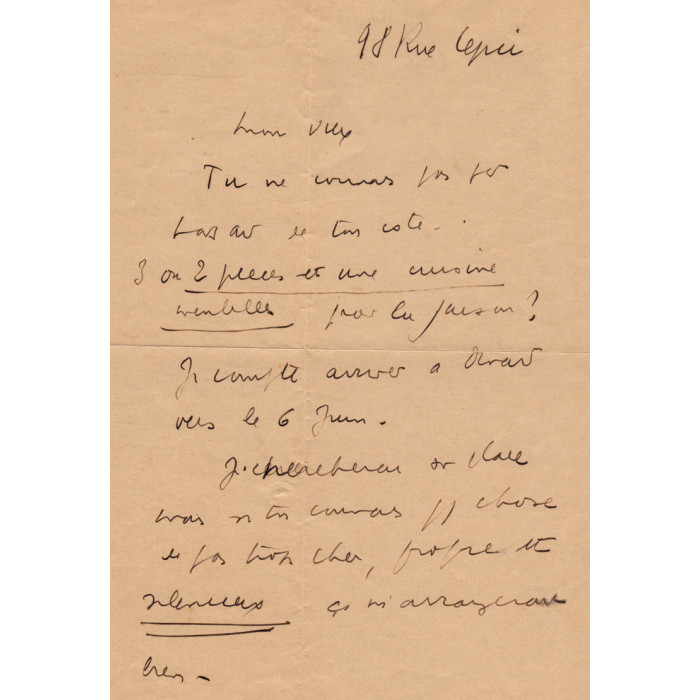 98 Rue Lepic
Mon vieux
Tu ne connais pas par
hasard de ton côté.
3 ou 2 pièces et une cuisine
meublées pour la saison ?
Je compte arriver à Dinard
vers le 6 Juin.
Je chercherai sur place
mais si tu connais qq chose
de pas trop cher, propre et
silencieux ça m'arrangerait
bien -